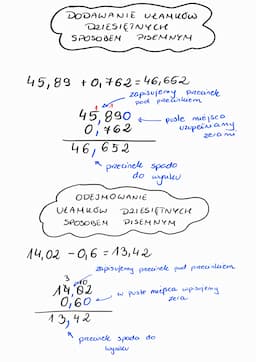 DODAWANIE UŁAMKÓW
DZIESIĘTNYCH
SPOSOBEM PISEMNYM
45,89 + 0,762 = 46,652
zapisujemy przecinek
pod przecinkiem
1 1
45,890
0,762
puste miejsca
uzupełniamy
zerami
46,652
przecinek spada
do wyniku
ODEJMOWANIE
UŁAMKÓW DZIESIĘTNYCH
SPOSOBEM PISEMNYM
14,02 - 0,6 = 13,42
zapisujemy przecinek pod przecinkiem
3 10
14,02
0,60
w puste miejsca wpisujemy
zera
13,42
przecinek spada do
wyniku